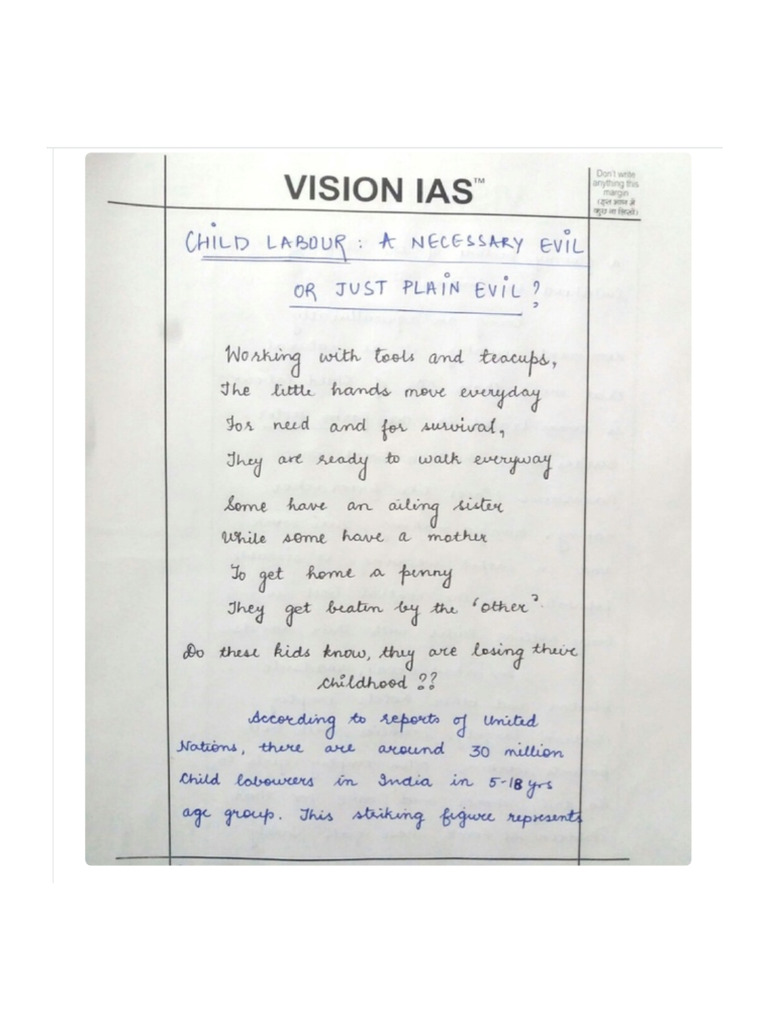 VISION IAS™
Don't write
anything this
margin
CHILD LABOUR : A NECESSARY EVIL
OR JUST PLAIN EVIL ?
Working with tools and teacups,
The little hands move everyday
For need and for survival,
They are ready to walk everyway
Some have an ailing sister
While some have a mother
To get home a penny
They get beaten by the 'other'.
Do these kids know, they are losing their
childhood ??
According to reports of United
Nations, there are around 30 million
child labourers in India in 5-18 yrs
age group. This striking figure represents